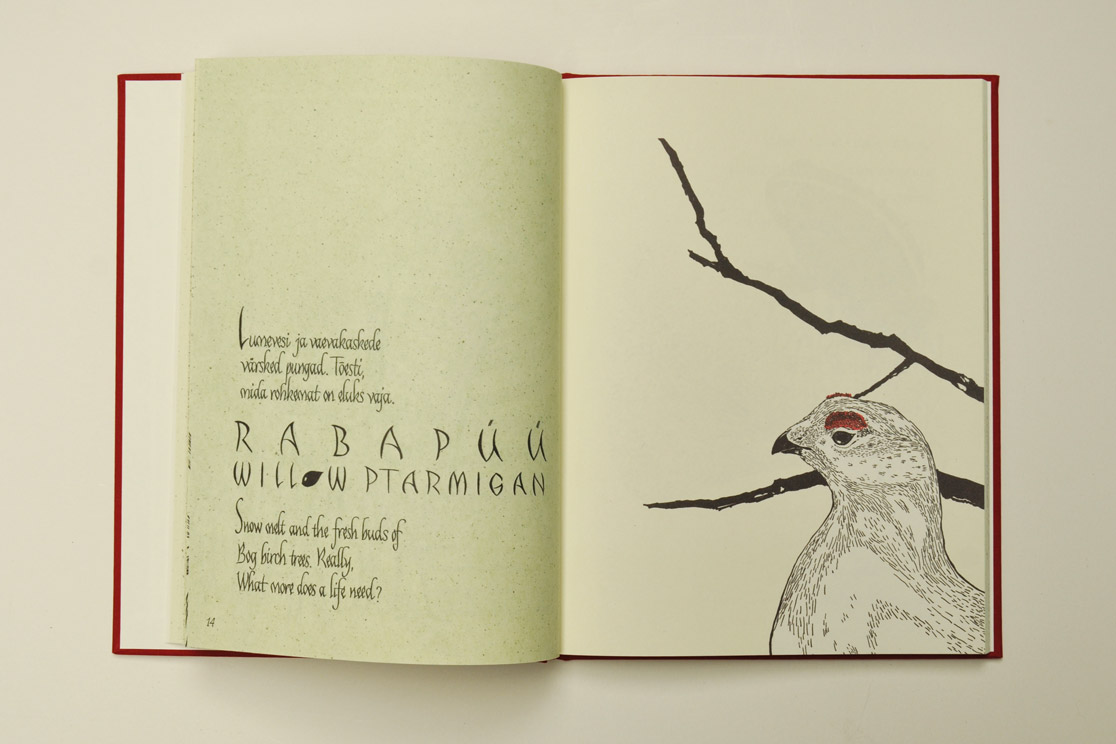 Lumevesi ja vaevakaskede
värsked pungad. Tõesti,
mida rohkemat on eluks vaja.
RABAPÜÜ
WILLOW PTARMIGAN
Snow melt and the fresh buds of
Bog birch trees. Really,
What more does a life need?
14